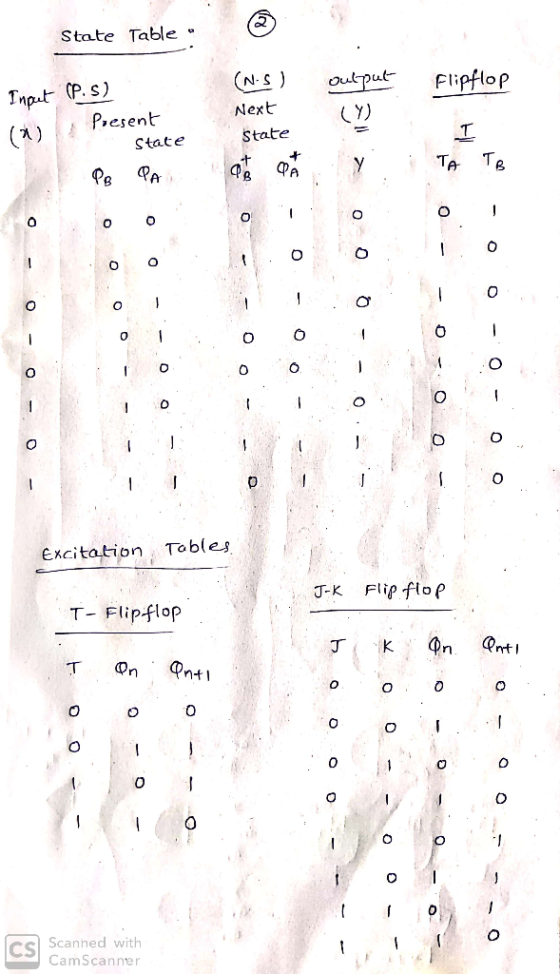 ②
State Table :
Input (P.S) (N.S) output Flipflop
(x) Present State Next State (Y) I
QB QA QB+ QA+ Y TA TB
0 0 0 0 1 0 0 1
1 0 0 1 0 0 1 0
0 0 1 1 1 0 1 0
1 0 1 0 0 1 0 1
0 1 0 0 0 1 1 0
1 1 0 1 1 0 0 1
0 1 1 1 1 1 0 0
1 1 1 0 1 1 1 0
Excitation Tables
T- Flipflop
T Qn Qn+1
0 0 0
0 1 1
1 0 1
1 1 0
J-K Flip flop
J K Qn Qn+1
0 0 0 0
0 0 1 1
0 1 0 0
0 1 1 0
1 0 0 1
1 0 1 1
1 1 0 1
1 1 1 0
CS Scanned with
CamScanner